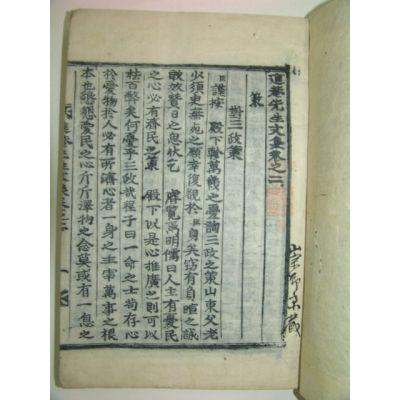 先生文集卷之二
策
對三政策
臣謹按 殿下軫萬幾之憂詢三政之策山東父老
必須史無死之願幸復覩於 自矣窃有自暄之誠
敢效贊日之息伏乞 睿覽焉明儒曰人主有憂民
之心必有濟民之策 殿下以是心推廣之則可以
祛百弊矣何憂乎三政哉程子曰一命之士苟存心
於愛物於人必有所濟心者一身之主宰萬事之根
本也懇懇愛民之心斤斤澤物之念莫或有一息之